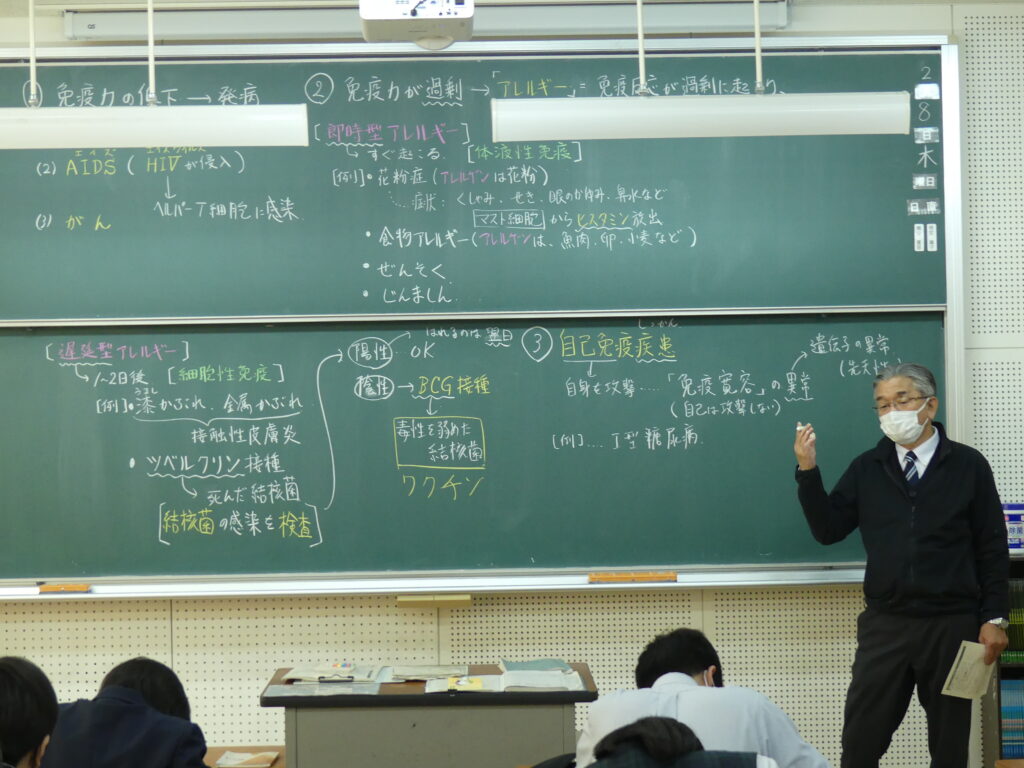 ① 免疫力の低下 → 発病
エイズ
(2) AIDS ( HIVが侵入)
ヘルパーT細胞に感染
(3) がん
② 免疫力が過剰 → 「アレルギー」= 免疫反応が過剰に起こり、
[即時型アレルギー]
すぐ起こる. [体液性免疫]
[例]・花粉症(アレルゲンは花粉)
…症状: くしゃみ、せき、眼のかゆみ、鼻水など
マスト細胞 から ヒスタミン放出
・食物アレルギー(アレルゲンは、魚肉、卵、小麦など)
・ぜんそく
・じんましん.
2
8
日
木
曜日
日直
[遅延型アレルギー]
1~2日後 [細胞性免疫]
うるし
[例]・漆かぶれ、金属かぶれ
接触性皮膚炎
・ツベルクリン接種
死んだ結核菌
[結核菌の感染を検査]
はれるのは翌日
陽性… OK
陰性 → BCG接種
毒性を弱めた
結核菌
ワクチン
しっかん
③ 自己免疫疾患
遺伝子の異常
自身を攻撃……「免疫寛容」の異常
(自己は攻撃しない)
[例]… I型糖尿病.
除菌